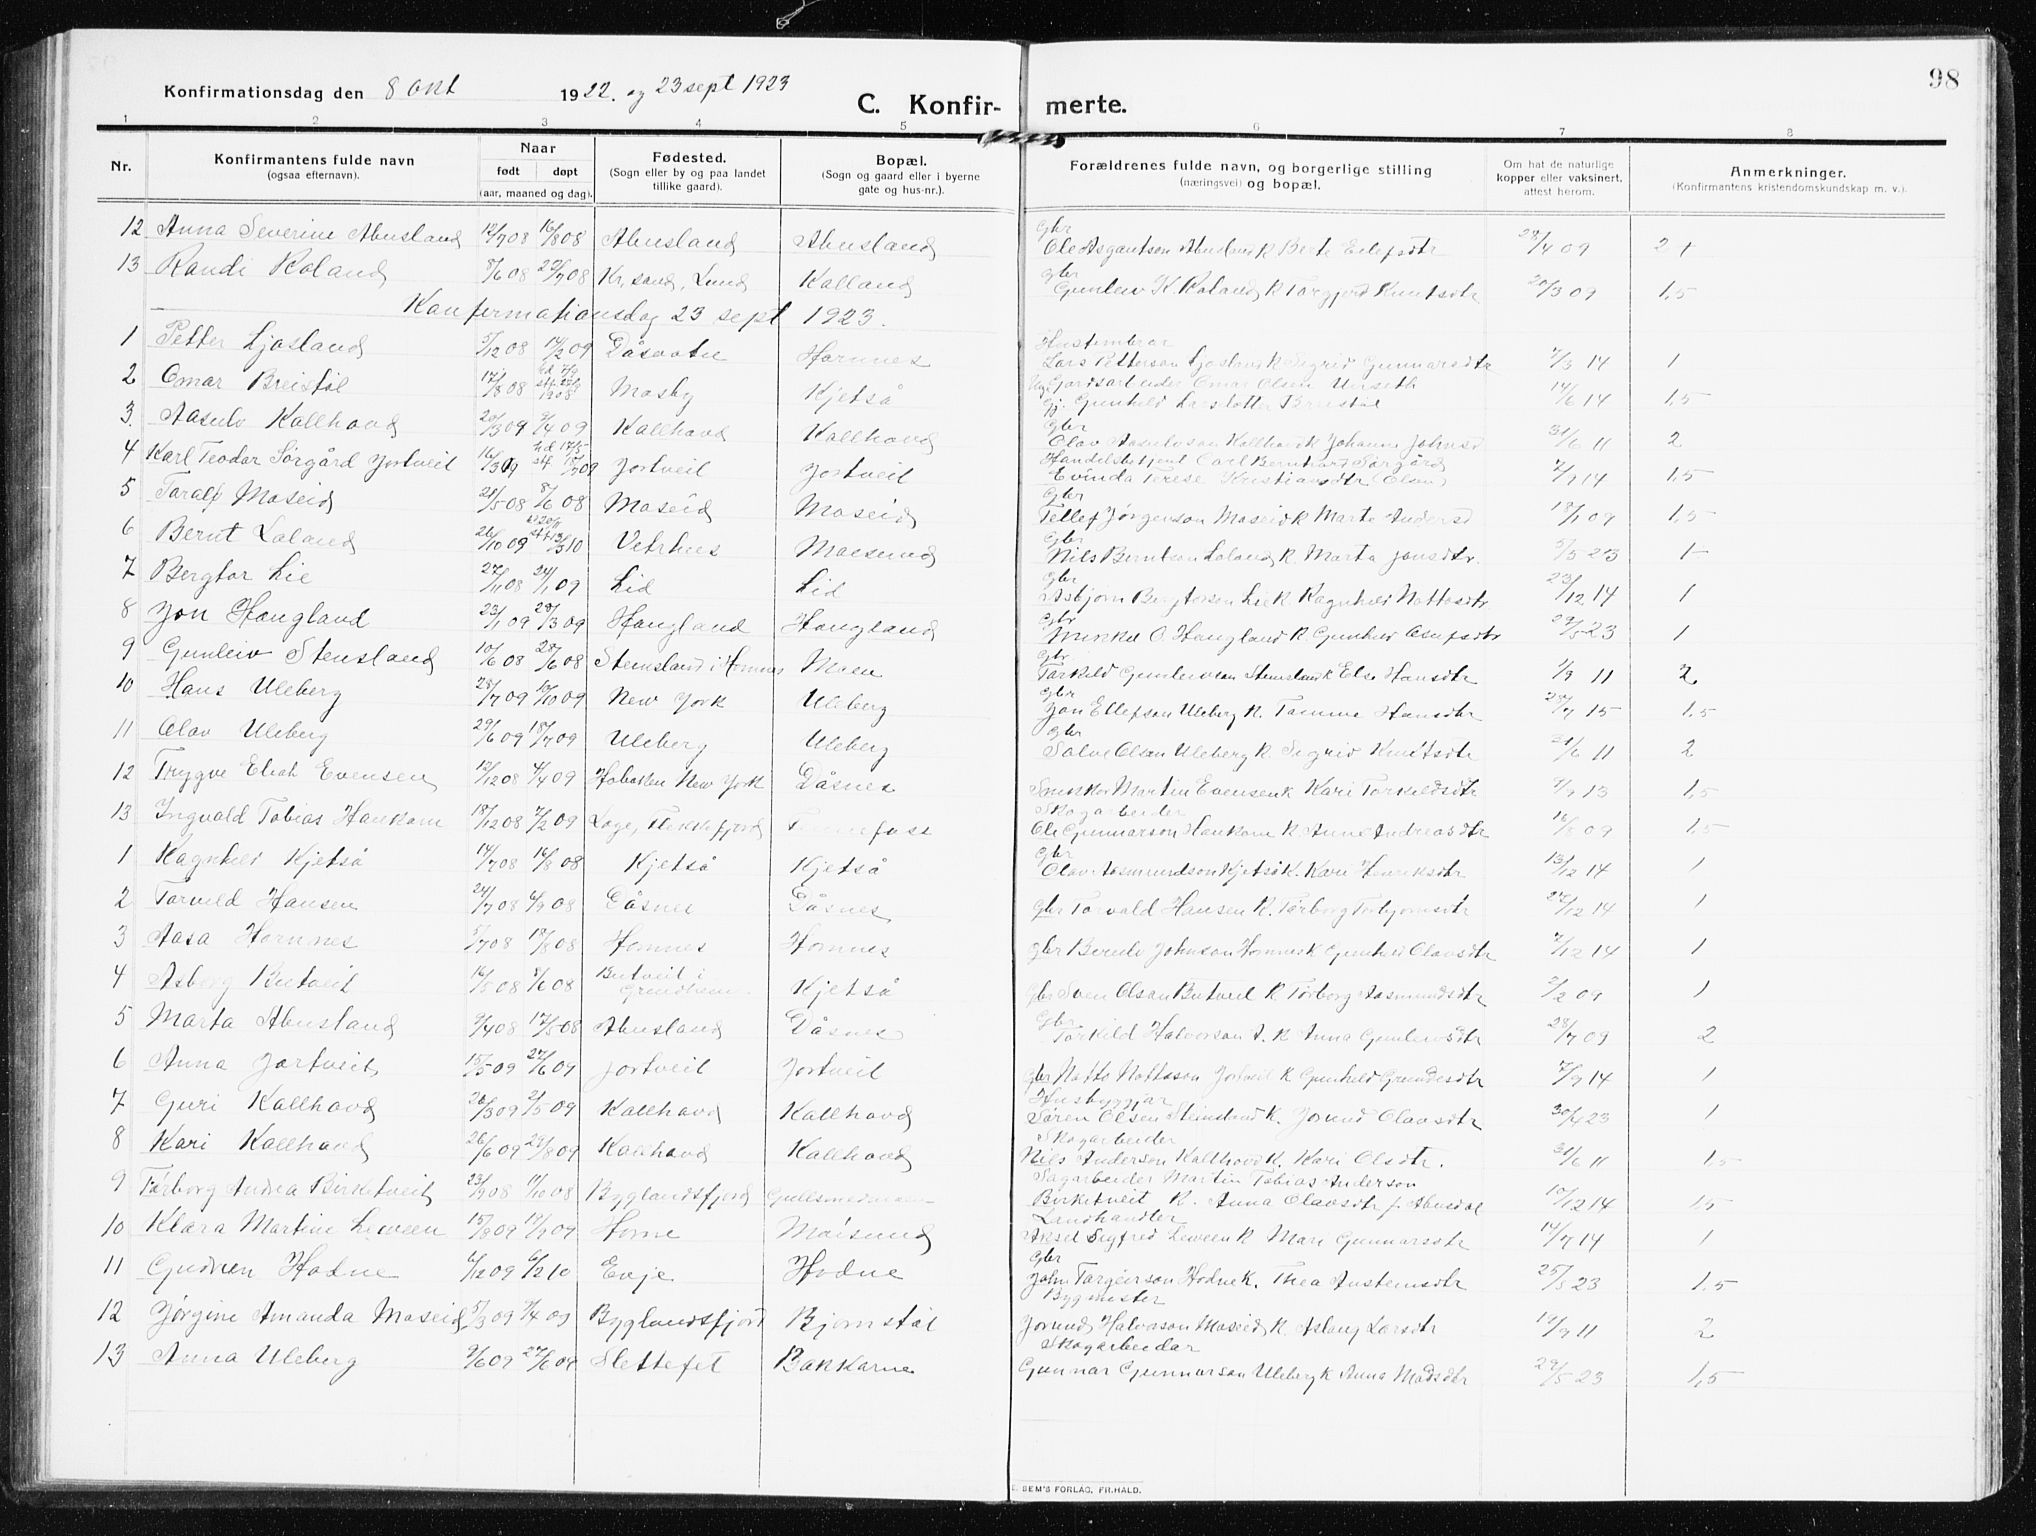 98
Konfirmationsdag den 8 Okt 1922. og 23 sept 1923
C. Konfir- merte.
1 2 3 4 5 6 7 8
Nr.
Konfirmantens fulde navn
(ogsaa efternavn).
Naar
født døpt
(aar, maaned og dag).
Fødested.
(Sogn eller by og paa landet
tillike gaard).
Bopæl.
(Sogn og gaard eller i byerne
gate og hus-nr.).
Forældrenes fulde navn, og borgerlige stilling
(næringsvei) og bopæl.
Om hat de naturlige
kopper eller vaksinert,
attest herom.
Anmerkninger.
(Konfirmantens kristendomskundskap m. v.).
12 Anna Severine Abusland 12/7 08 16/8 08 Abusland Abusland Gbr Ole Asgautson Abusland K Berte Eilefsdtr 28/4 09 2+
13 Randi Roland 8/6 08 29/7 08 Kr.sand, Lund Kalland gbr Gunleiv K. Roland K Torgjerd Knutsdtr 20/3 09 1,5
Konfirmationsdag 23 sept 1923.
1 Petter Ljosland 5/12 08 14/2 09 Dåsvatn Hornnes Hustømbrar Lars Petterson Ljosland K Sigrid Gunnarsdtr 7/3 14 1
2 Omar Breistøl 17/8 08 1908 Mosby Kjetså Gardsarbeider Omar Olsen Gj. Gunhild Larsdotter Breistøl 14/6 14 1,5
3. Aasulv Kallhovd 20/3 09 9/4 09 Kallhovd Kallhovd Gbr Olav Aasulvson Kallhovd K Johanne Johnsd 31/6 11 2
4 Karl Teodor Sørgård Jortveit 16/3 09 Jortveit Jortveit Handelsbetjent Carl Bernhard Sørgård Evinda Terese Kristiansdtr 7/7 14 1,5
5 Taralf Moseid 21/5 08 8/6 08 Moseid Moseid Gbr Tellef Jørgenson Moseid K Marte Andersd 18/1 09 1,5
6 Bernt Loland 26/10 09 Vetrhus Moisund Gbr Nils Berntson Loland K. Marta Jonsdtr. 5/5 23 1
7 Bergtor Lie 27/11 08 24/1 09 Lid Lid Gbr Asbjørn Bergtorson Lie K Ragnhild Nottosdtr 23/12 14 1
8 Jon Haugland 23/1 09 28/3 09 Haugland Haugland Gbr Mikkel O. Haugland K. Gunhild 29/5 23 1
9 Gunleiv Stensland 10/6 08 28/6 08 Steinsland i Hornnes Moen Gbr Torkild Gunleivson Steinsland K Else Hansdtr 1/9 11 2
10 Hans Uleberg 28/7 09 10/10 09 New York Uleberg Gbr Jon Ellefson Uleberg K. Tomine Hansdtr 28/7 15 1,5
11 Olav Uleberg 29/6 09 18/7 09 Uleberg Uleberg Gbr Salve Olsen Uleberg K. Sigrid Knutsdtr 31/6 11 2
12 Trygve Eliah Evensen 12/12 08 4/4 09 Hoboken New York Dåsnes Snekker Martin Evensen K Kari Torkildsdtr 9/7 13 1,5
13 Ingvald Tobias Haukom 18/12 08 7/2 09 Loge, Flekkefjord Fennefoss Skogarbeider Ole Gunnarson Haukom K Anne Andreasdtr 16/8 09 1,5
1 Ragnhild Kjetså 14/7 08 16/8 08 Kjetså Kjetså Gbr Olav Aasmundson Kjetså K. Kari Henriksdtr 13/12 14 1
2 Torvild Hansen 24/7 08 6/9 08 Dåsnes Dåsnes gbr Torvald Hansen K. Tørborg Torbjørnsdtr 22/12 14 1
3 Aasa Hornnes 5/7 08 18/8 08 Hornnes Hornnes gbr Berulv Johnson Hornnes K Gunhild Olavsdtr 7/12 14 1
4 Asborg Butveit 16/5 08 8/6 08 Butveit i Grindheim Kjetså Gbr Sven Olson Butveit K Tørborg Aasmundsdtr 2/2 09 1
5 Marta Abusland 9/4 08 17/5 08 Abusland Dåsnes Gbr Torkild Halvorson A. K Anna Gunleivsdtr 28/7 09 2
6 Anna Jortveit 15/5 09 27/6 09 Jortveit Jortveit Gbr Notto Nottoson Jortveit K Gunhild Grundesdtr 7/7 14 1
7 Guri Kallhovd 26/3 09 2/5 09 Kallhovd Kallhovd Husbyggjar Søren Olsen Steinsland K. Jorund Olavsdtr 30/4 23 1
8 Kari Kallhovd 26/6 09 29/8 09 Kallhovd Kallhovd Skogarbeider Nils Anderson Kallhovd K. Kari Olsdtr. 31/6 11 1,5
9 Tørborg Andrea Birketveit 23/9 08 11/10 08 Byglandsfjord Gullsmedmoen Sagarbeider Martin Tobias Anderson Birketveit K. Anna Olavsdtr f. Abusdal 10/12 14 1,5
10 Klara Martine Leveen 15/8 09 19/9 09 Horne Moisund Landhandler Aksel Sigfred Leveen K Mari Gunnarsdtr 14/7 14 1
11 Gudrun Hodne 6/12 09 6/2 10 Evje Hodne Gbr John Targeirson Hodne K. Thea Austensdtr 25/5 23 1,5
12 Jørgine Amanda Moseid 5/3 09 9/4 09 Byglandsfjord Bjørnstøl Bygmester Jorund Halvorson Moseid K. Aslaug Larsdtr 12/9 11 2
13 Anna Uleberg 9/6 09 27/6 09 Slettefet Bakkarne Skogarbeidar Gunnar Gunnarson Uleberg K Anna Madsdtr 29/5 23 1,5
E. SEM'S FORLAG, FR.HALD.